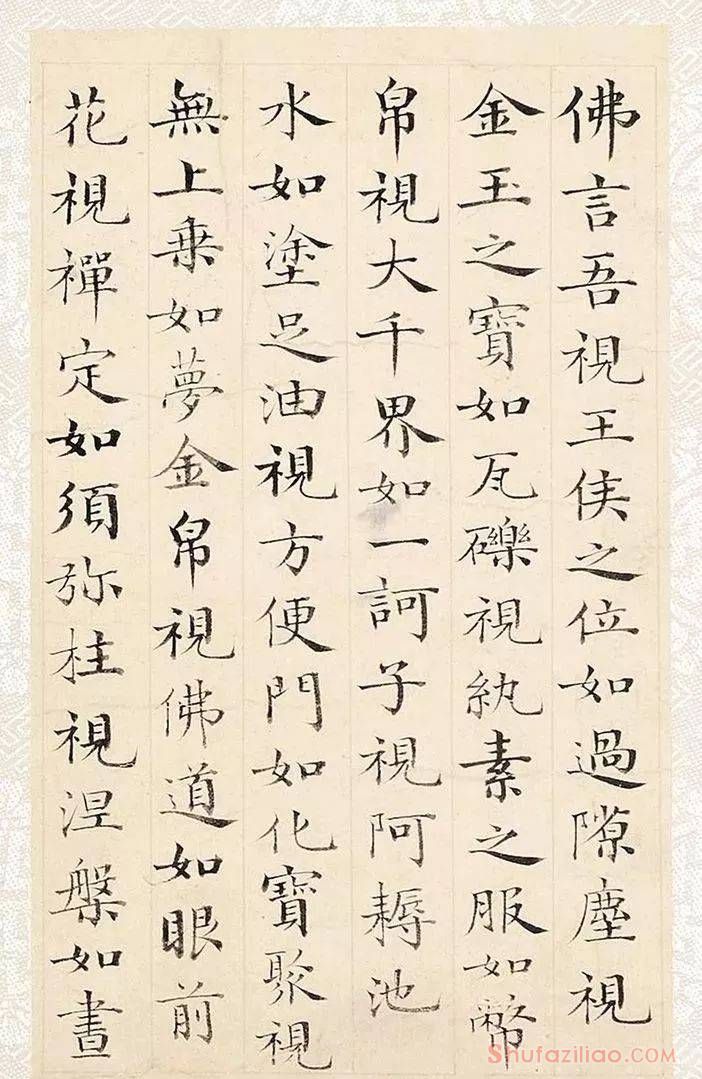 佛言吾視王侯之位如過隙塵視
金玉之寶如瓦礫視紈素之服如幣
帛視大千界如一訶子視阿耨池
水如塗足油視方便門如化寶聚視
無上乗如夢金帛視佛道如眼前
花視禪定如須弥柱視涅槃如晝
Shufaziliao.com